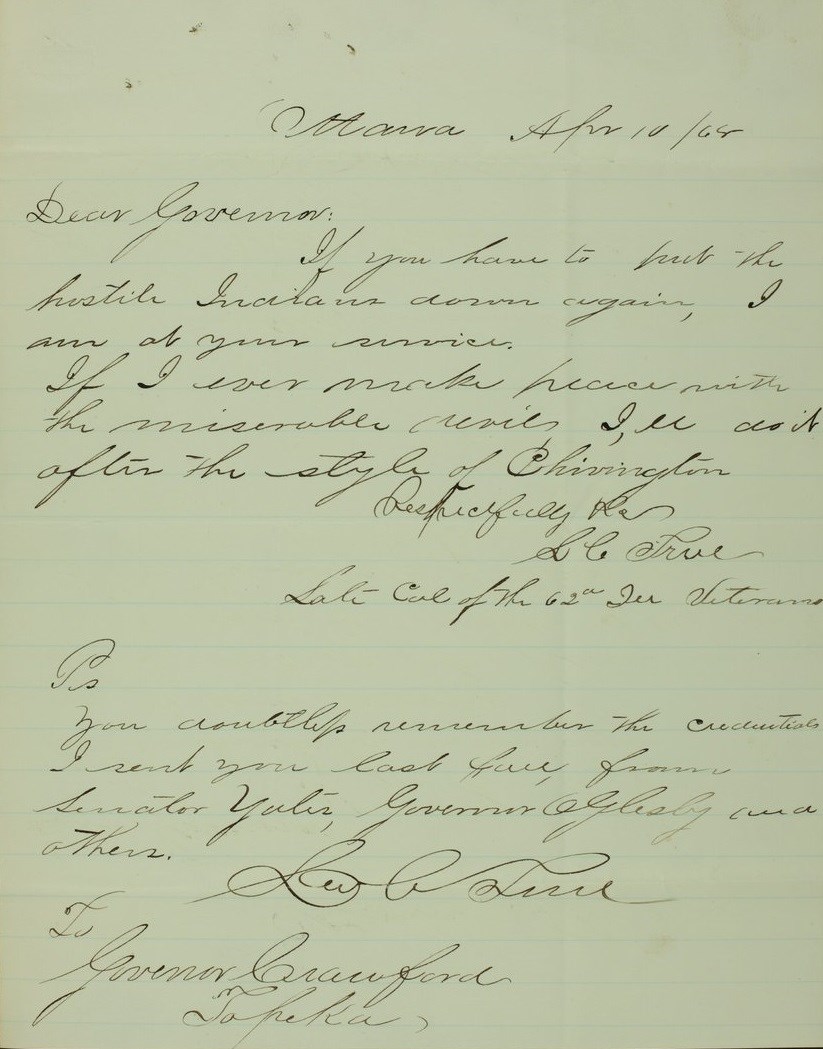 Apr 10 /68
Dear Governor:
If you have to put the
hostile Indians down again, I
am at your service.
If I ever make peace with
the miserable devils, I,ll do it
after the style of Chivington
Respectfully
L C True
Late Col of the 62nd Veterans
Ps
You doubtless remember the credentials
I sent you last fall, from
Senator Yates, Governor Oglesby and
others.
Lew C True
To
Govenor Crawford
Topeka